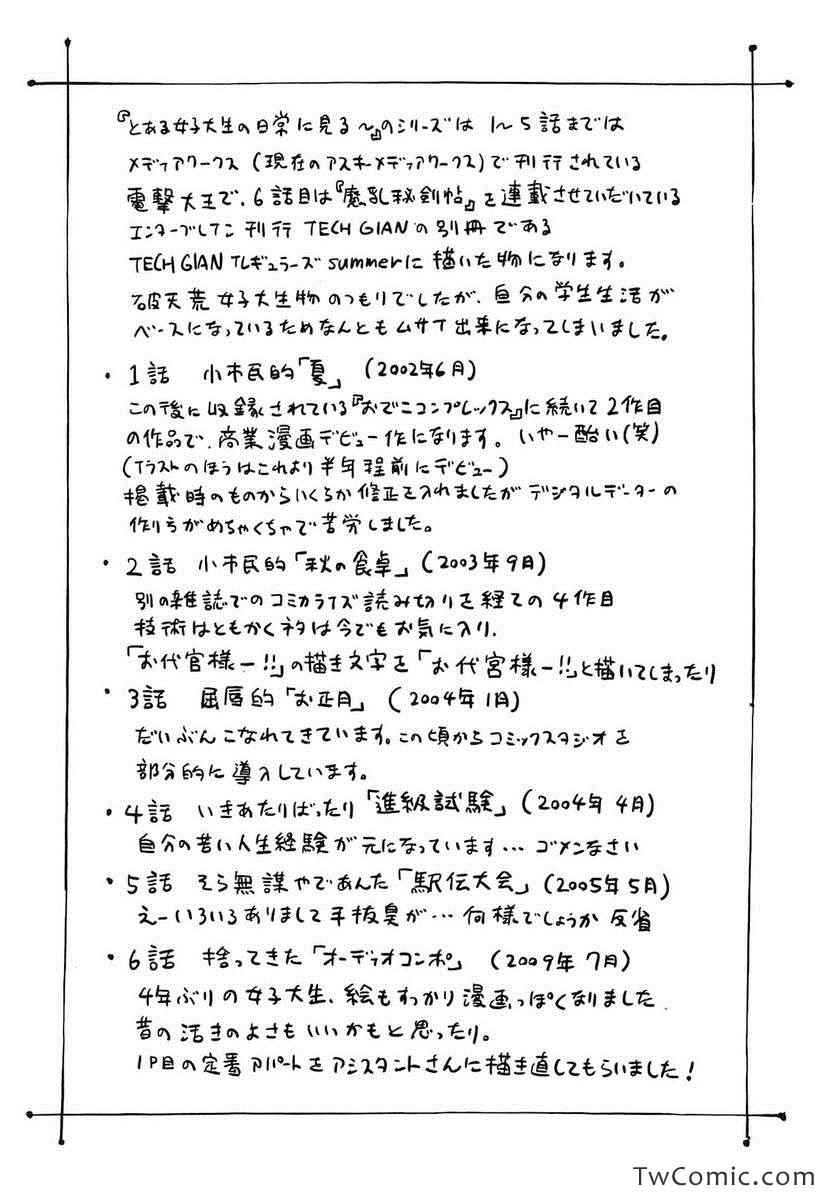 『とある女子大生の日常に見る〜』のシリーズは 1〜5話までは
メディアワークス (現在のアスキーメディアワークス)で刊行されている
電撃大王で、6話目は『魔乳秘剣帖』を連載させていただいている
エンターブレイン 刊行 TECH GIANの別冊である
TECH GIAN イレギュラーズ summerに描いた物になります。
破天荒女子大生物のつもりでしたが、自分の学生生活が
ベースになっているためなんともムサイ出来になってしまいました。
・1話 小市民的「夏」 (2002年6月)
この後に収録されている『おでこコンプレックス』に続いて2作目
の作品で、商業漫画デビュー作になります。いやー酷い(笑)
(イラストのほうはこれより半年程前にデビュー)
掲載時のものからいくらか修正を入れましたがデジタルデーターの
作り方がめちゃくちゃで苦労しました。
・2話 小市民的「秋の食卓」(2003年9月)
別の雑誌でのコミカライズ読み切りを経ての4作目
技術はともかくネタは今でもお気に入り.
「お代官様ー!!」の描き文字を「お代宮様ー!!」と描いてしまったり
・3話 屈辱的「お正月」 (2004年1月)
だいぶんこなれてきています。この頃からコミックスタジオを
部分的に導入しています。
・4話 いきあたりばったり「進級試験」(2004年4月)
自分の苦い人生経験が元になっています… ゴメンなさい
・5話 そら無謀やであんた「駅伝大会」(2005年5月)
えーいろいろありまして手抜臭が… 何様でしょうか 反省
・6話 捨ってきた「オーディオコンポ」 (2009年7月)
4年ぶりの女子大生、絵もすっかり漫画っぽくなりました
昔の活きのよさもいいかもと思ったり。
1P目の定番アパートをアシスタントさんに描き直してもらいました!
TwComic.com